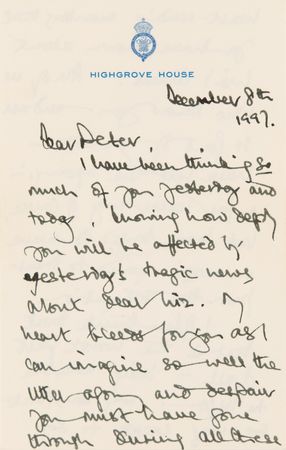 HIGHGROVE HOUSE
December 8th
1997.
Dear Peter.
I have been thinking so
much of you yesterday and
today, knowing how deeply
you will be affected by
yesterday's tragic news
about dear Liz. My
heart bleeds for you as I
can imagine so well the
utter agony and despair
you must have gone
through during all these